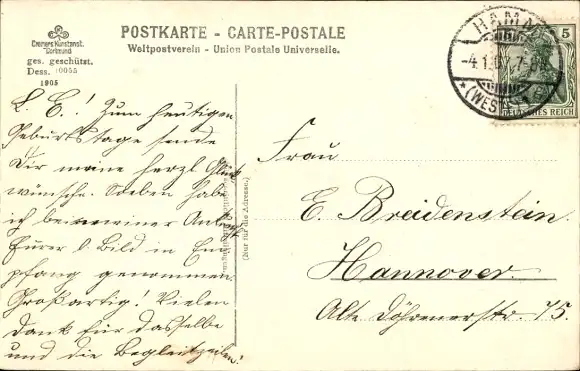 POSTKARTE - CARTE-POSTALE
Weltpostverein - Union Postale Universelle.
Cramers Kunstanst.
Dortmund
ges. geschützt.
Dess. 10055
1905
HAMM
-4.1.07.7-8
*(WESTF.)
5
DEUTSCHES REICH
L. E.! Zum heutigen
Geburtstage sende
Dir meine herzl. Glück
wünsche. Soeben habe
ich bei meiner Ankunft
Eurer l. Bild in Em
pfang genommen.
Großartig! Vielen
Dank für dasselbe
und die Begleitzeilen.
(Nur für die Adresse.)
Frau
E. Breidenstein.
Hannover.
Alte Döhrenerstr. 75.